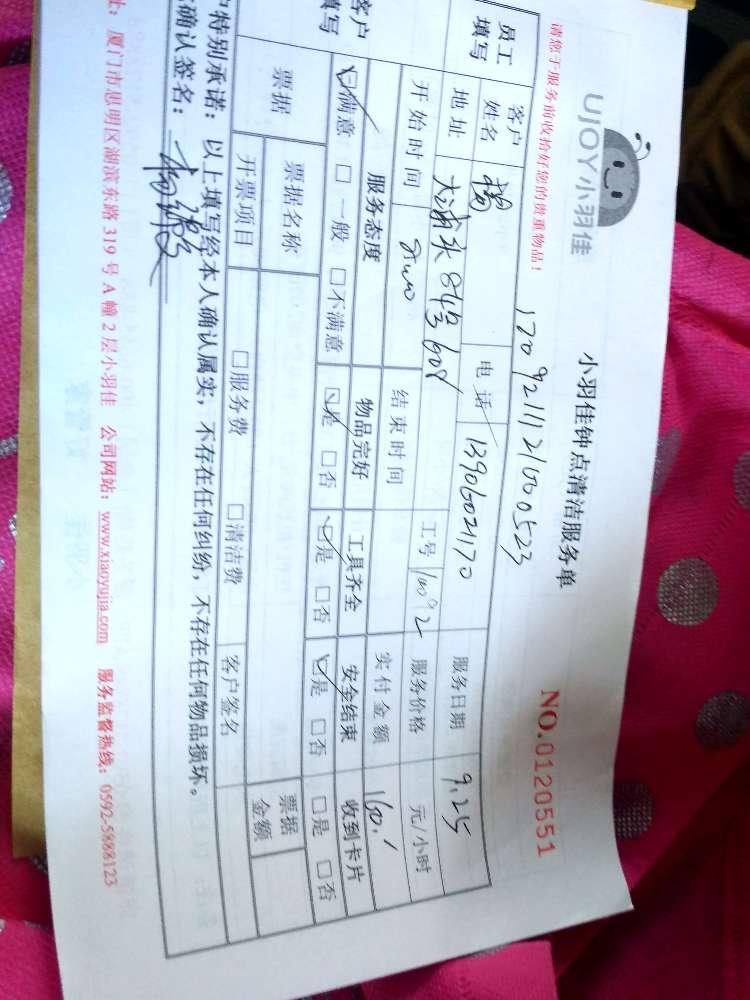 UJOY小羽佳
小羽佳钟点清洁服务单
NO.0120551
请您于服务前收拾好您的贵重物品！
员工填写
客户姓名 杨 电话 13906021170 服务日期 9.25
地址 工号 服务价格 元/小时
开始时间 结束时间 实付金额 160.
客户填写
服务态度 物品完好 工具齐全 安全结束 收到卡片
☑满意 □一般 □不满意 ☑是 □否 ☑是 □否 ☑是 □否 □是 □否
票据 票据名称 票据金额
开票项目 □服务费 □清洁费 客户签名
户特别承诺：以上填写经本人确认属实，不存在任何纠纷，不存在任何物品损坏。
确认签名：
址：厦门市思明区湖滨东路 319 号 A 幢 2 层小羽佳 公司网站：www.xiaoyujia.com 服务监督热线：0592-5888123